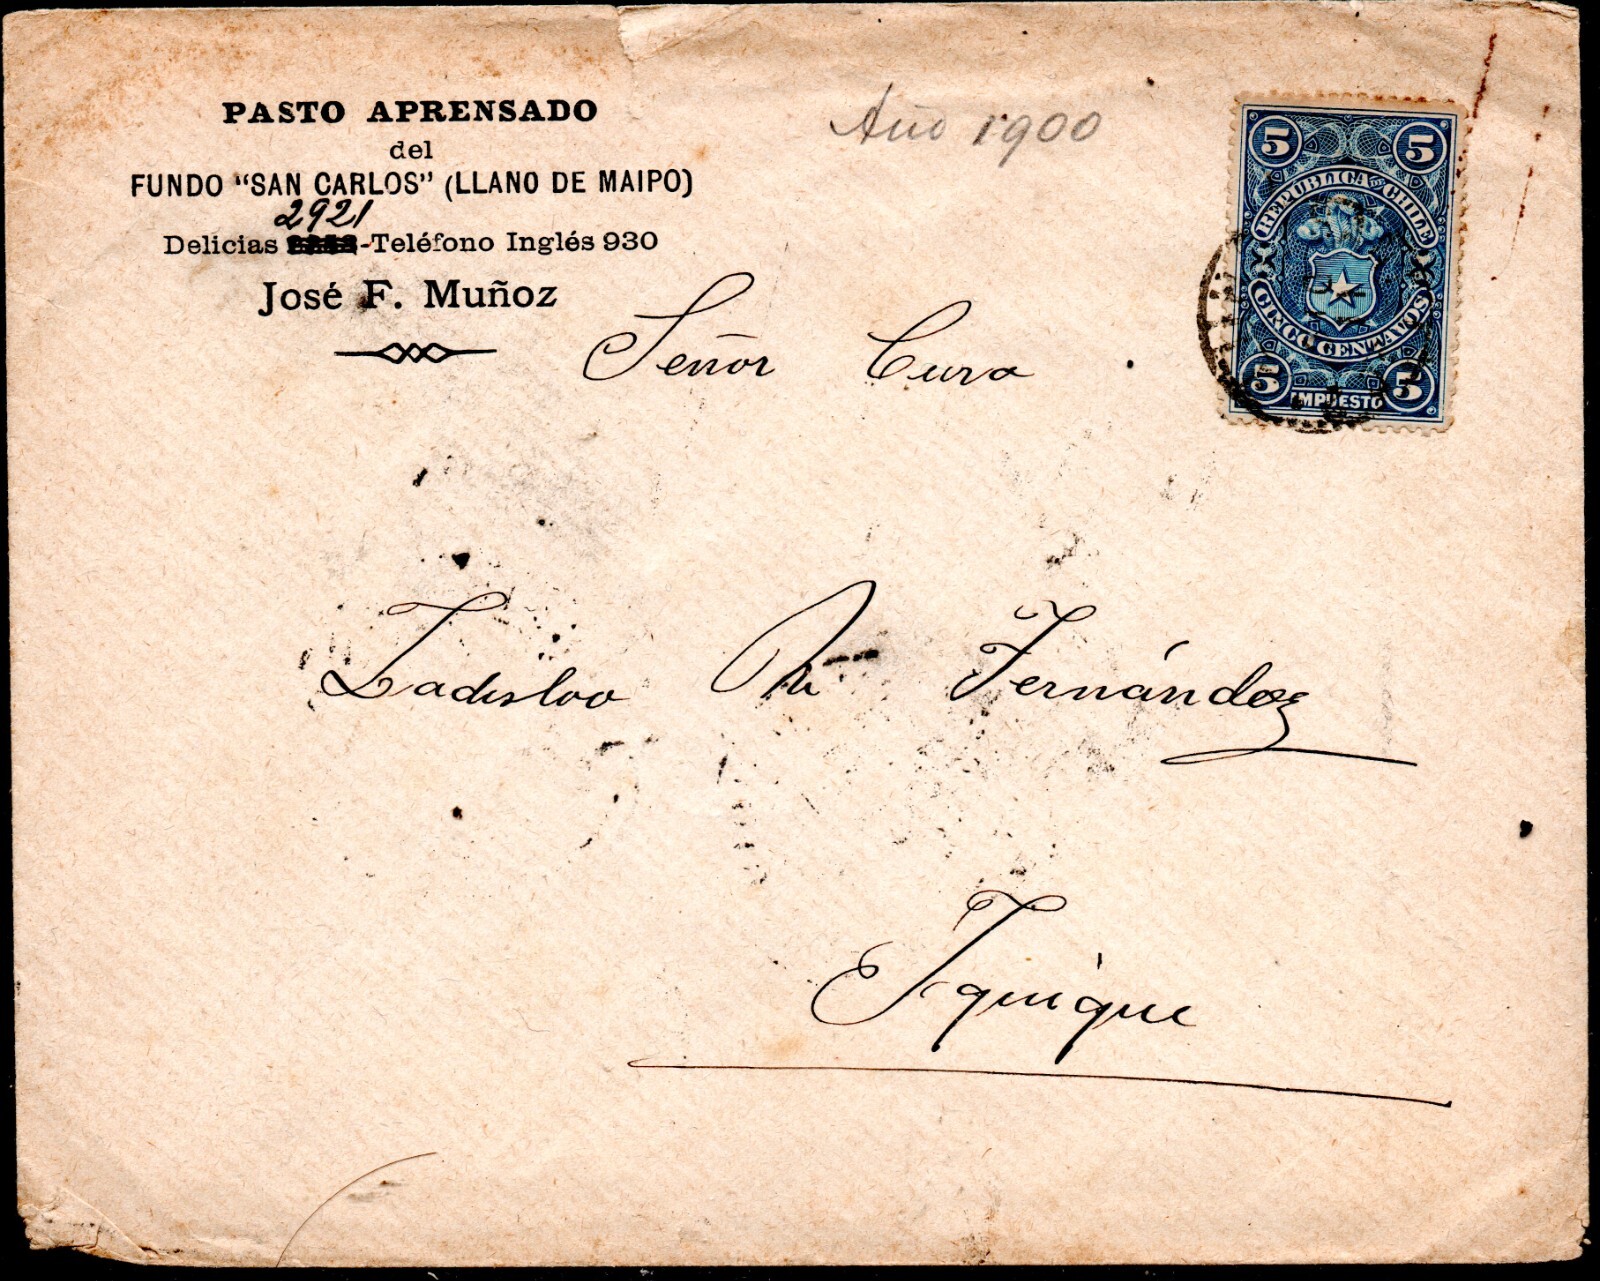 PASTO APRENSADO
del
FUNDO "SAN CARLOS" (LLANO DE MAIPO)
2921
Delicias -Teléfono Inglés 930
José F. Muñoz
Año 1900
5 5
REPUBLICA DE CHILE
CINCO CENTAVOS
5 IMPUESTO 5
Señor Cura
Ladislao Fernández
Iquique